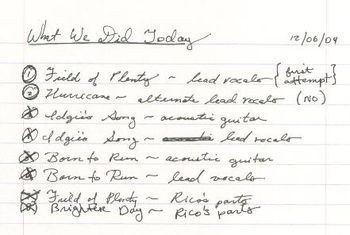 What We Did Today 12/06/09
1 Field of Plenty ~ lead vocals {first attempt}
2 Hurricane ~ alternate lead vocals (NO)
Idgie's Song ~ acoustic guitar
Idgie's Song ~ lead vocals
Born to Run ~ acoustic guitar
Born to Run ~ lead vocals
Field of Plenty ~ Rico's parts
Brighter Day ~ Rico's parts